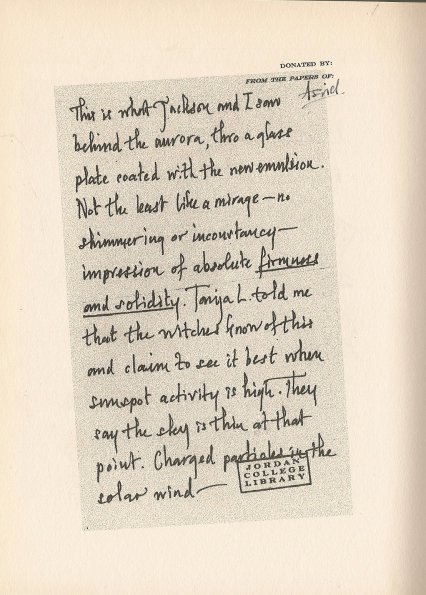 DONATED BY:
FROM THE PAPERS OF:
Asriel
This is what Jackson and I saw
behind the aurora, thro a glass
plate coated with the new emulsion.
Not the least like a mirage – no
shimmering or inconstancy –
impression of absolute firmness
and solidity. Tanja L. told me
that the witches know of this
and claim to see it best when
sunspot activity is high. They
say the sky is thin at that
point. Charged particles in the
solar wind –
JORDAN
COLLEGE
LIBRARY